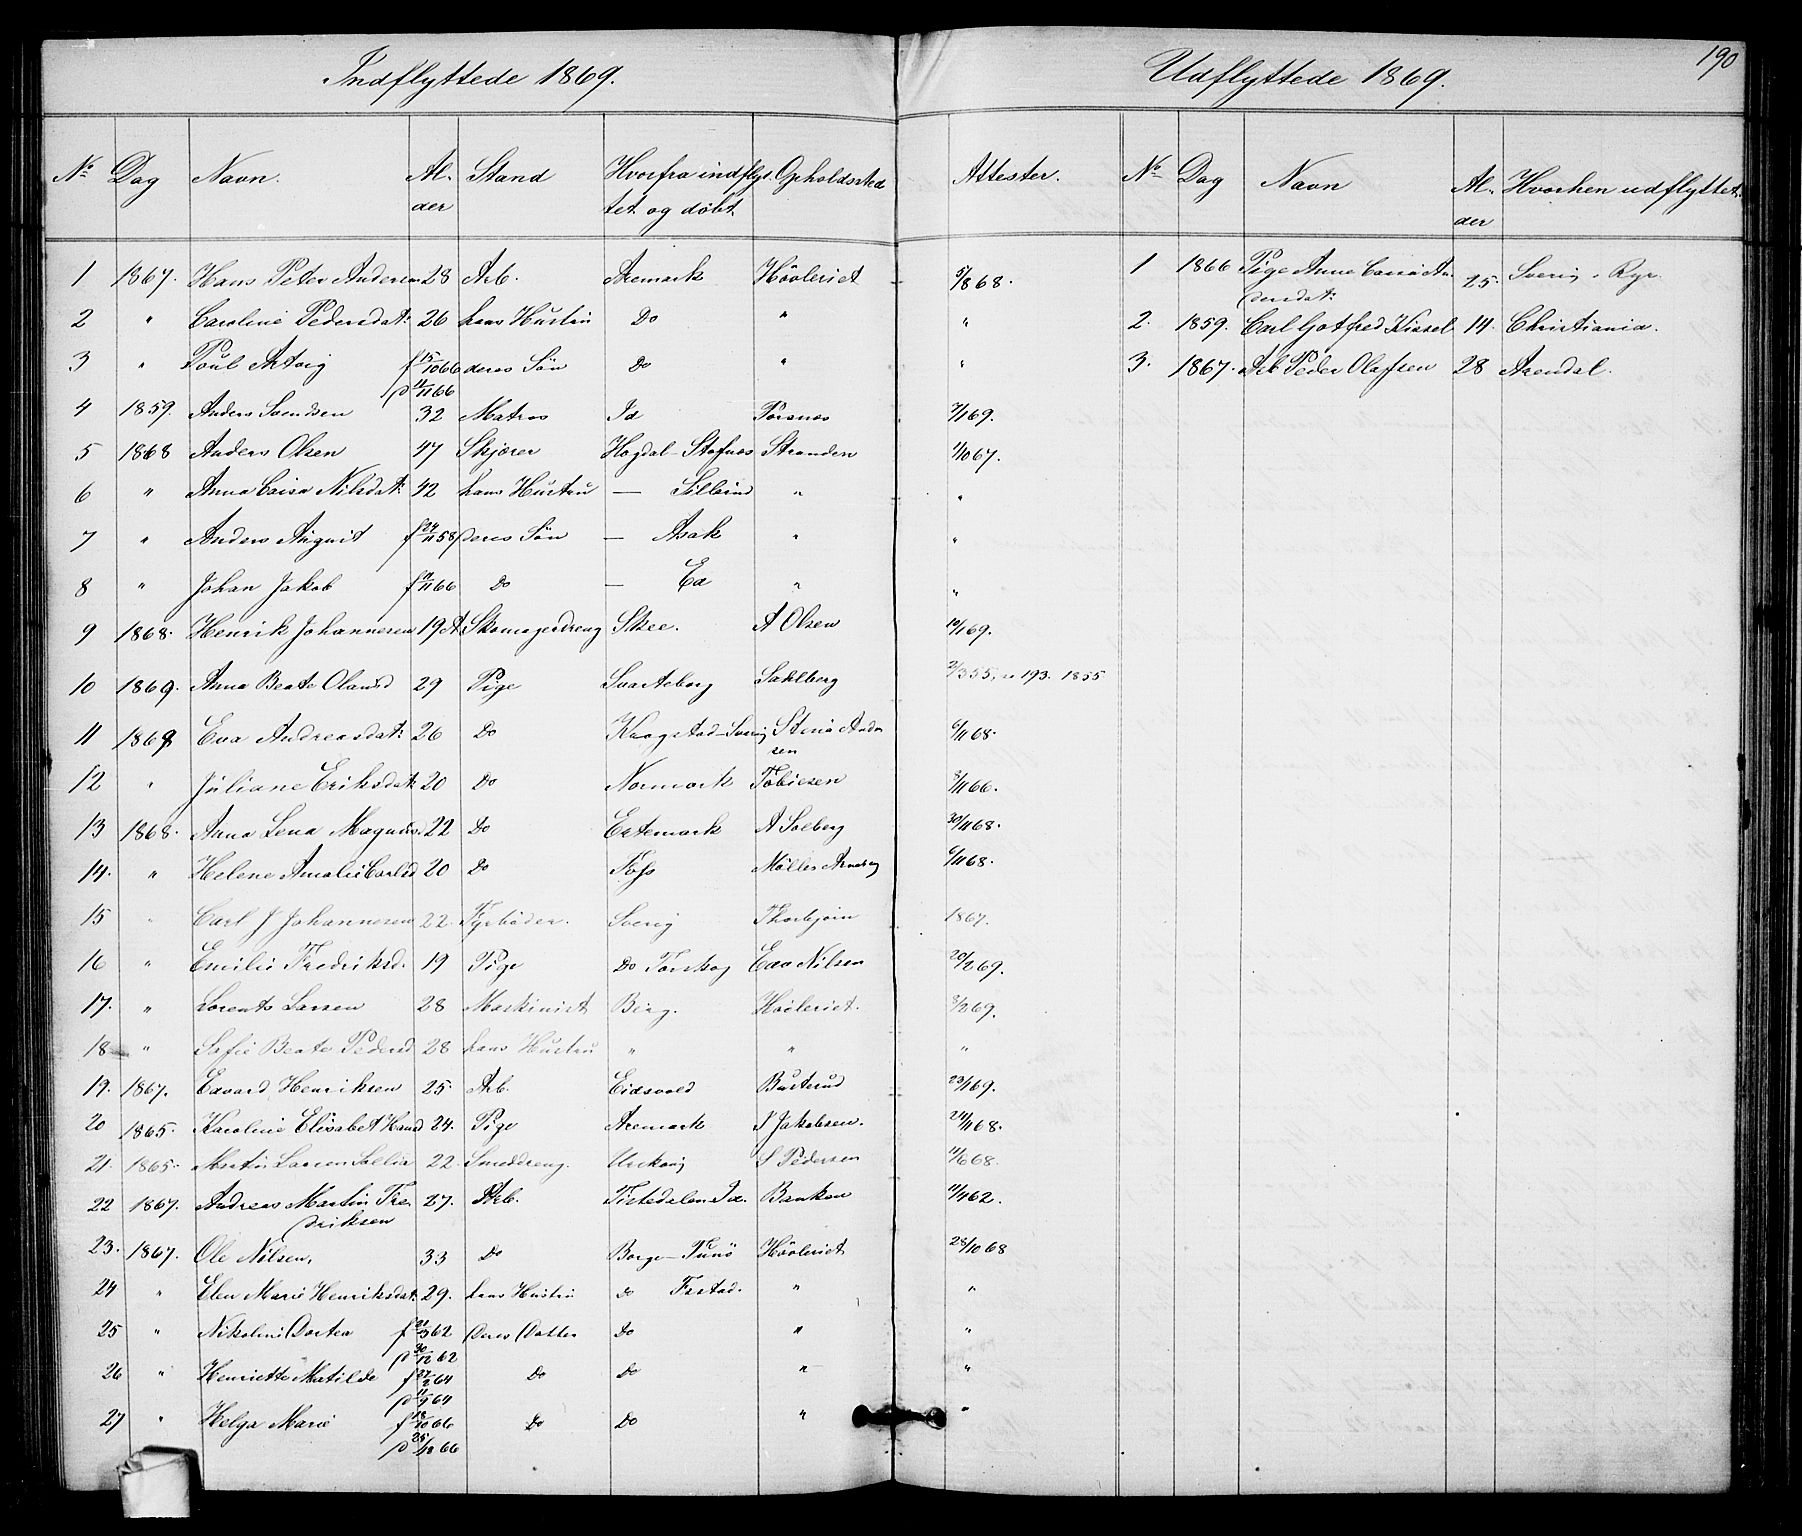 190
Indflyttede 1869.
No Dag Navn. Al- Stand Hvorfra indflyt- Opholdssted Attester.
der tet og döbt
1 1867. Hans Peter Andersen 28 Arb. Aremark Höoleriet 5/8 68.
2 " Caroline Pedersdat: 26 hans Hustru Do " "
3 " Poul Artvig f 15/10 66 deres Sön Do " "
d 11/11 66
4 1859. Anders Svendsen 32 Matros Id Torsnes 7/1 69.
5 1868 Anders Olsen 47 Skjærer Hogdal - Stofnes Stranden 1/10 67.
6 " Anna Caisa Nilsdat: 42 hans Hustru — " "
7 " Anders August f 24/11 58 deres Sön — Asak " "
8 " Johan Jakob f 9/11 66 Do — Ed " "
9 1868. Henrik Johannesen 19 A Skomagerdreng Skee. A Olsen 10/1 69.
10 1869. Anna Beate Olausd 29 Pige Svarteborg Sahlberg 2/3 55, n 193. 1855
11 1869 Eva Andreasdat: 26 Do Krogstad - Sverig Stinö Ander 6/11 68.
sen
12 " Juliane Eriksdat 20 Do Normark Tobiesen 8/11 66.
13 1868. Anna Lena Magnus. 22 Do Ertemark A Solberg 30/11 68.
14. " Helene Amalie Carlsd 20 Do Foss Möller Arneberg 6/11 68.
15 " Carl J Johannesen 22. Fyrböder. Sverig Thorbjörn 1867.
16 " Emilie Fredriksd. 19 Pige Do Torskog Edv Nilsen 20/2 69.
17. " Lorents Larsen 28 Maskinist Berg. Höoleriet. 8/2 69.
18 " Sofie Beate Pedersd 28 hans Hustru " " "
19. 1867. Edvard Henriksen 25. Arb. Eidsvold Busterud 23/1 69.
20 1865. Karoline Elisabet Hansd 24. Pige Aremark J Jakobsen. 24/11 68.
21. 1865. Martin Larsen Sollie 22. Smeddreng. Urskoug S Pedersen 11/6 68.
22 1867. Andreas Martin Fre 27. Arb. Tistedalen Id. Banken 11/4 62.
driksen
23. 1867. Ole Nilsen, 33 Do Borge - Tunö Höoleriet 28/10 68
24 " Elen Marie Henriksdat. 29. hans Hustru Do Frstad. " "
25 " Nikoline Dortea f 21/3 62 deres Datter Do " "
d 30/12 62
26 " Henriette Matilde f 27/2 64 Do Do " "
d 11/9 64
27 " Helga Marie f 18/10 66 Do Do " "
d 25/12 66
Udflyttede 1869.
No Dag Navn Al- Hvorhen udflyttet.
der
1 1866 Pige Anne Caisa An 25. Sverig - Ryr.
dersdat:
2. 1859. Carl Gotfred Kissel 14. Christiania.
3. 1867. Arb Peder Olafsen 28 Arendal.